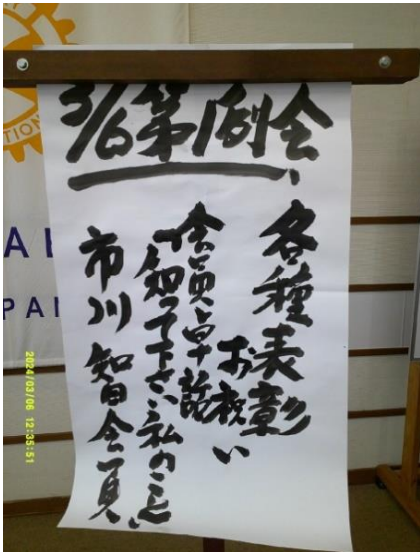 3/6第1例会
各種表彰
お祝い
会員卓話
知って下さい私のこと
市川 智会員
TION
PA
2024/03/06 12:35:51